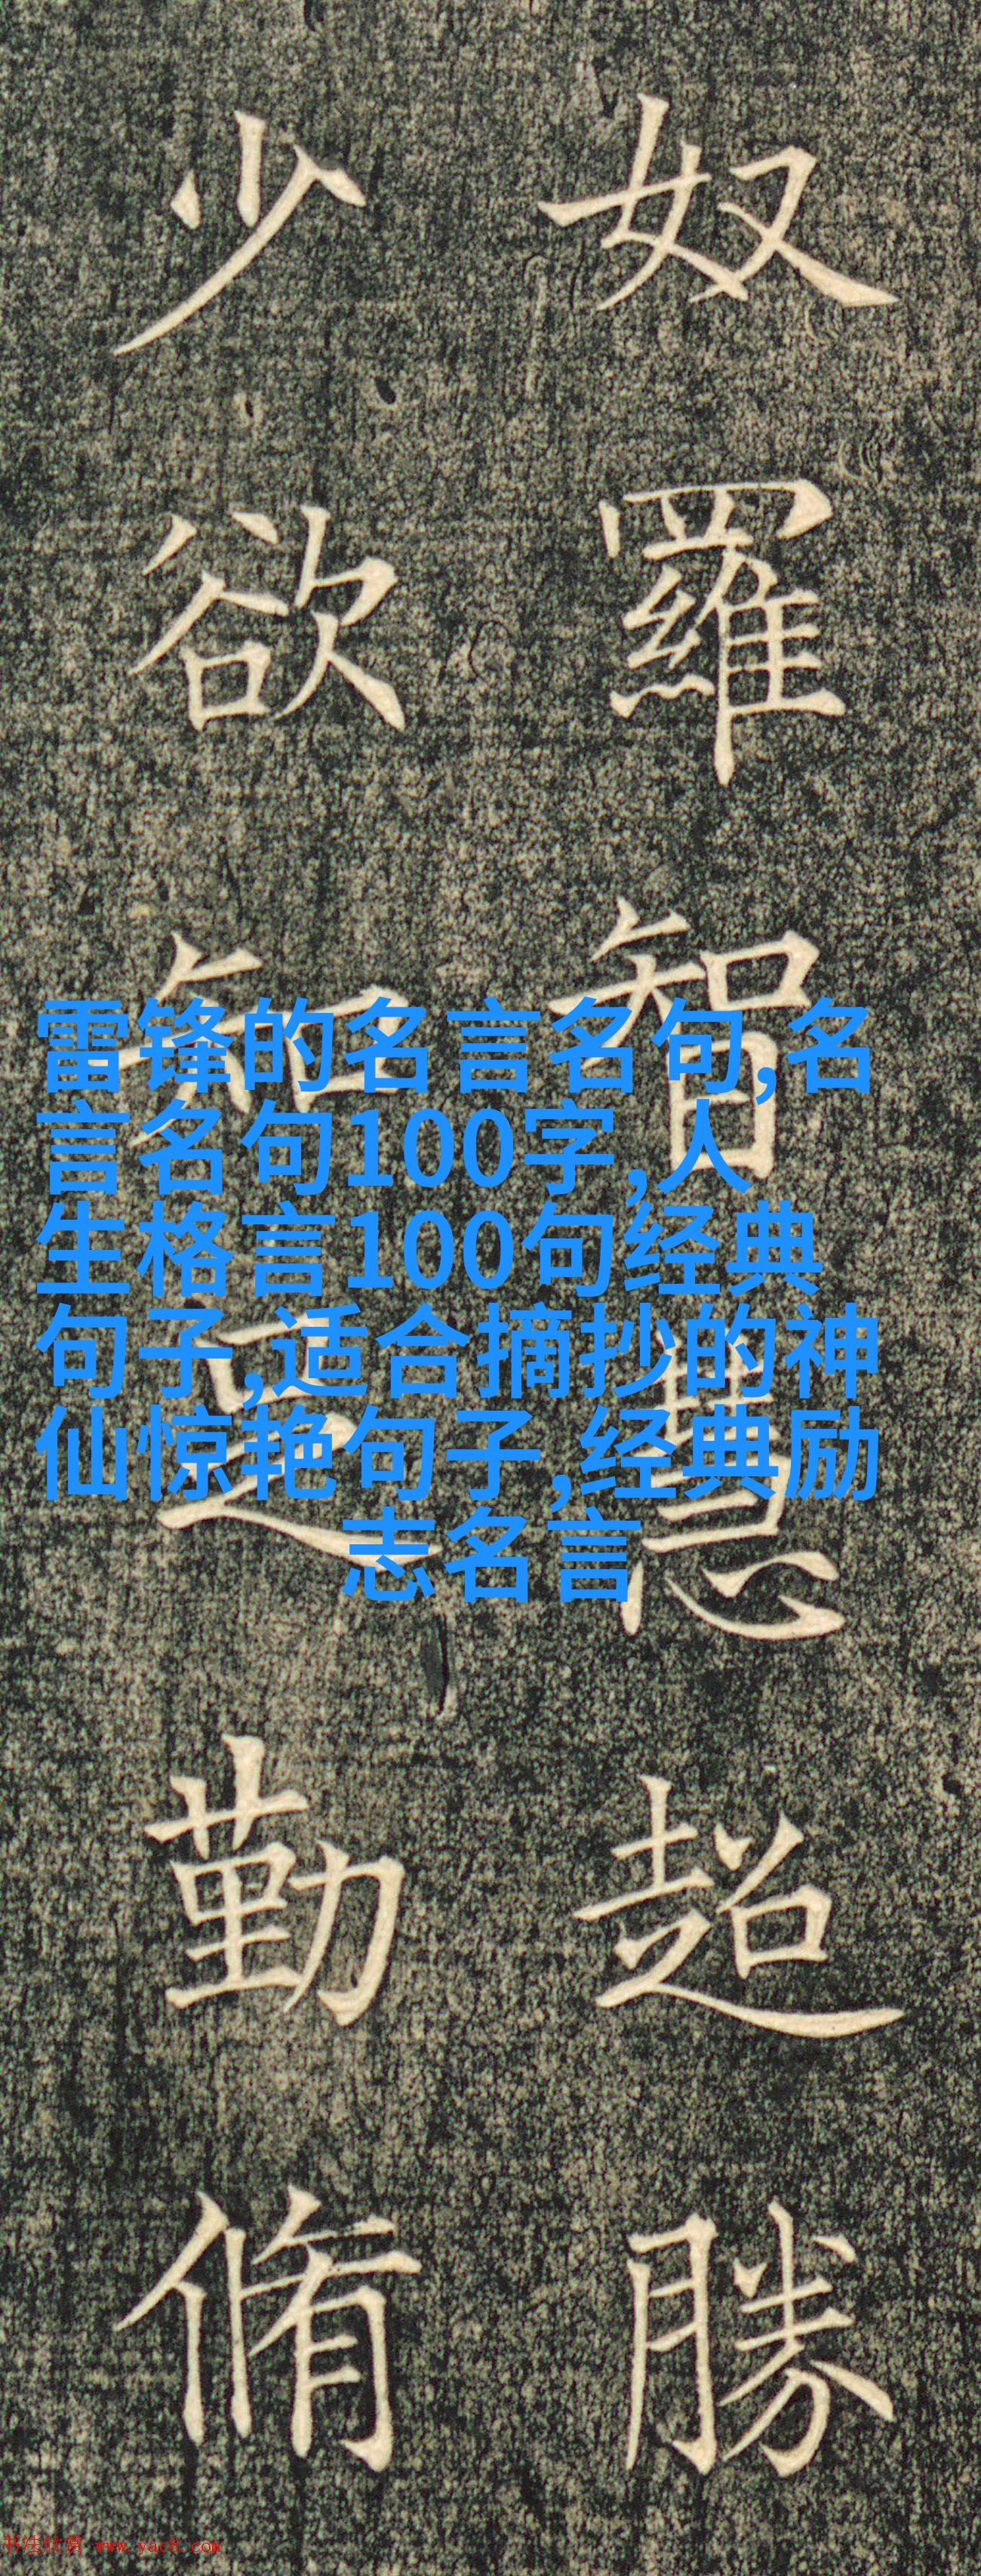 奴羅智慧超勝
少欲知足勤脩
雷锋的名言名句,名
言名句100字,人
生格言100句经典
句子,适合摘抄的神
仙惊艳句子,经典励
志名言
书法欣赏 www.yac8.com